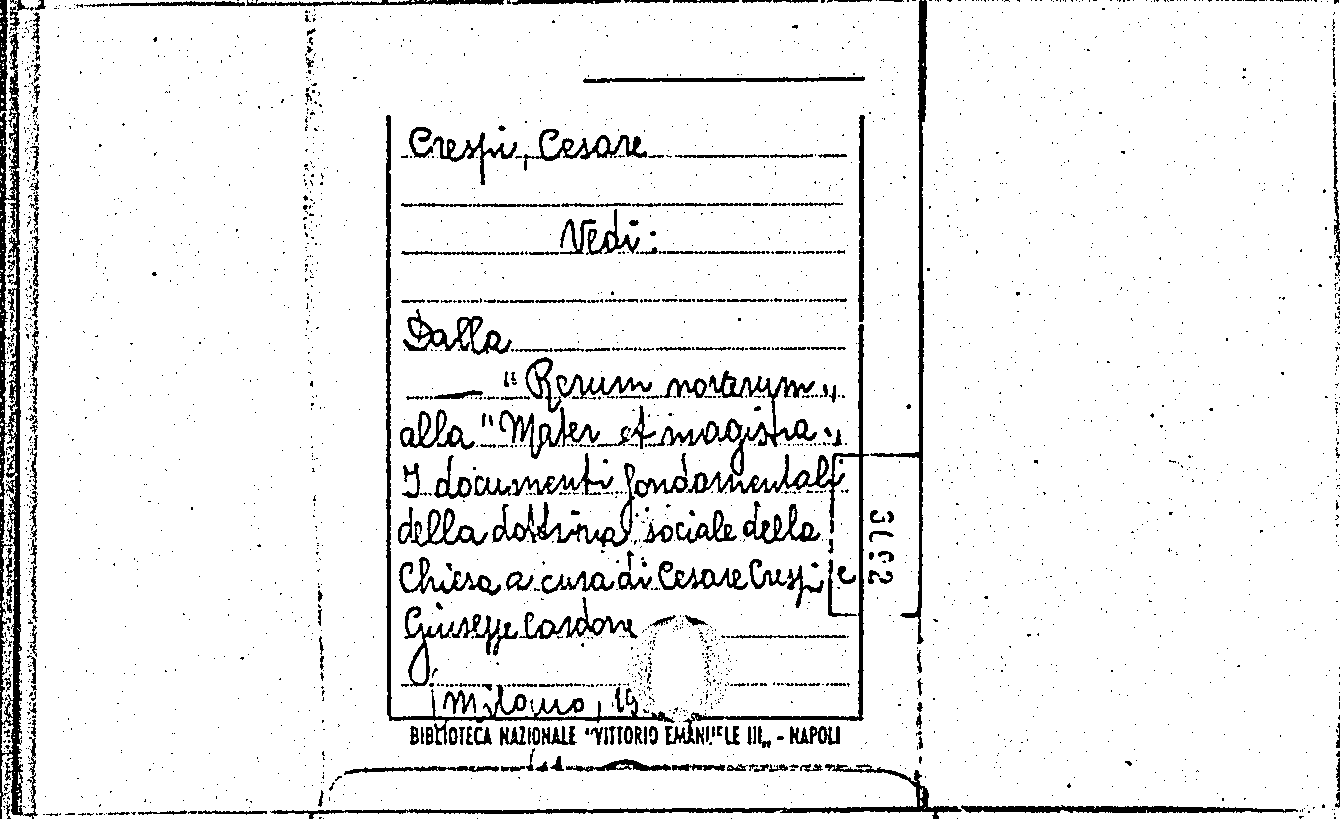 Crespi, Cesare
Vedi:
Dalla
— "Rerum novarum„
alla "Mater et magistra.„
I documenti fondamentali
della dottrina sociale della
Chiesa a cura di Cesare Crespi e
Giuseppe Cardone
Milano, 19
BIBLIOTECA NAZIONALE "VITTORIO EMANUELE III„ - NAPOLI